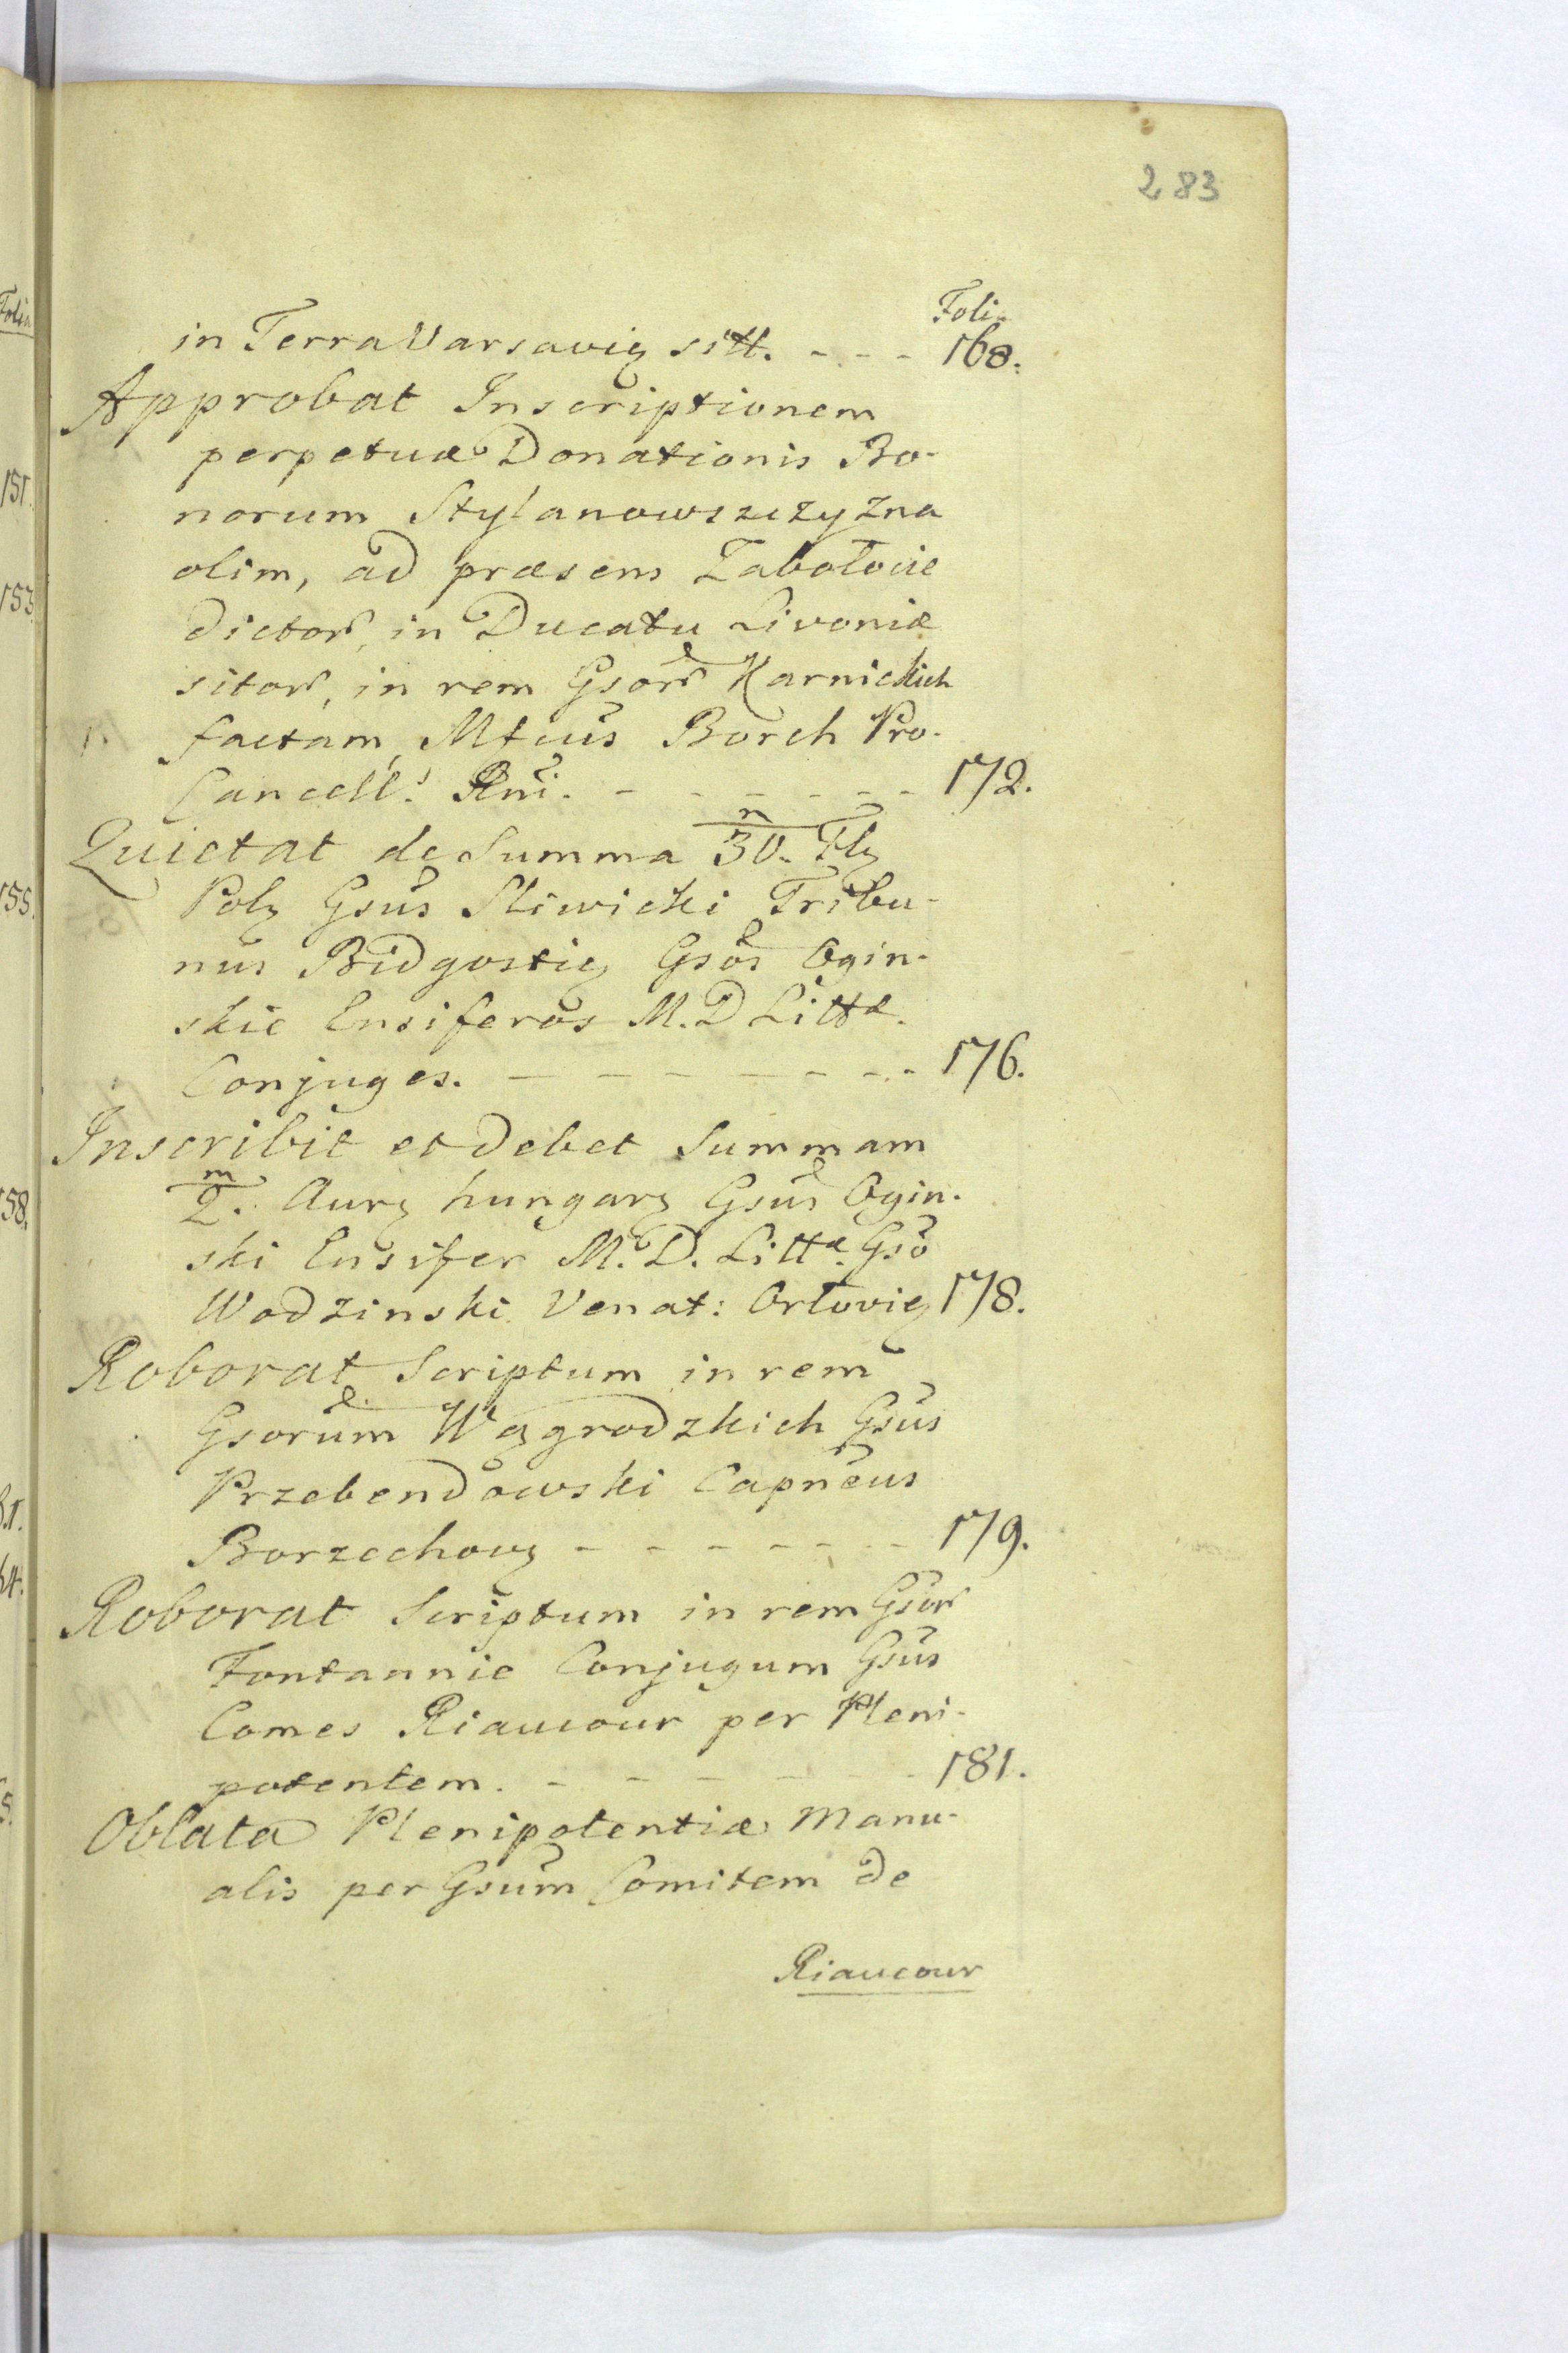 283
Foli.
in Terra Varsavię sitt. - - - 168.
Approbat Inscriptionem
perpetuæ Donationis Bo-
norum Stylanowszczyzna
olim, ad præsens Zabołoie
dictor, in Ducatu Livoniæ
sitor, in rem Gsor Karnickich
factam, Mfcus Borch Pro-
Cancell. Rni. - - - - - - 172.
Quietat de Summa m/30. Flę
Polę Gsus Sliwicki Tribu-
nus Bidgostię Gsos Ogin-
skie Ensiferos M. D Littæ.
Conjuges. - - - - - - - - 176.
Inscribit et debet Summam
m/2. Aurę hungarę Gsus Ogin-
ski Ensifer M. D. Littæ. Gso
Wodzinski Venat: Orłovię 178.
Roborat Scriptum in rem
Gsorum Węgrodzkich Gsus
Przebendowski Capneus
Borzechovę - - - - - - - 179.
Roborat Scriptum in rem Gsor
Fontannie Conjugum Gsus
Comes Riaucour per Pleni-
potentem. - - - - - - 181.
Oblata Plenipotentiæ Manu-
alis per Gsum Comitem de
Riaucour